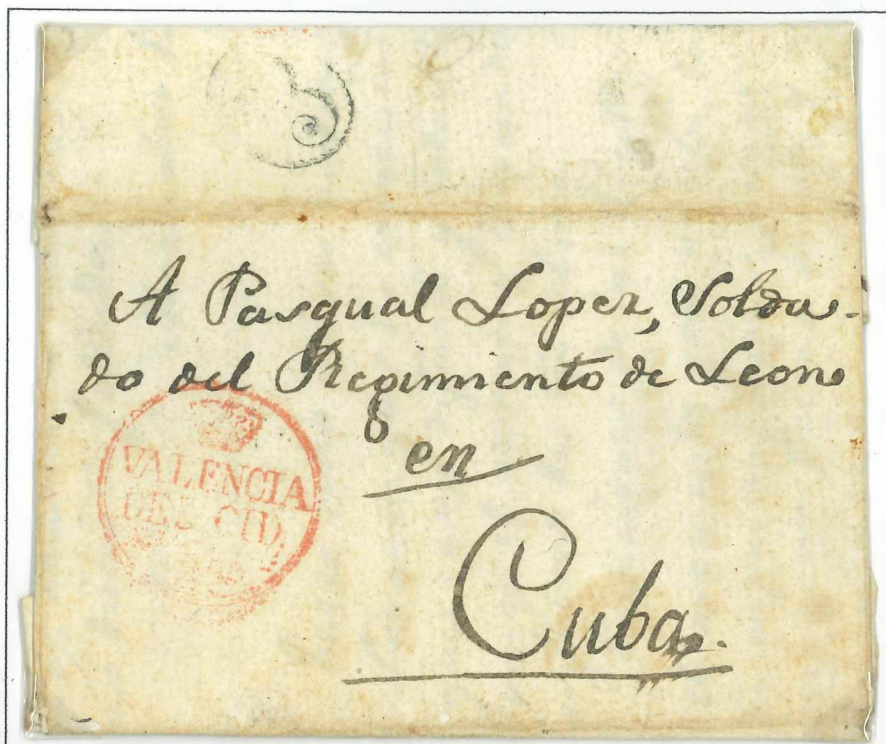 A Pasqual Lopez, Solda-
do del Regimiento de Leon
en
VALENCIA
DEL CID
Cuba.